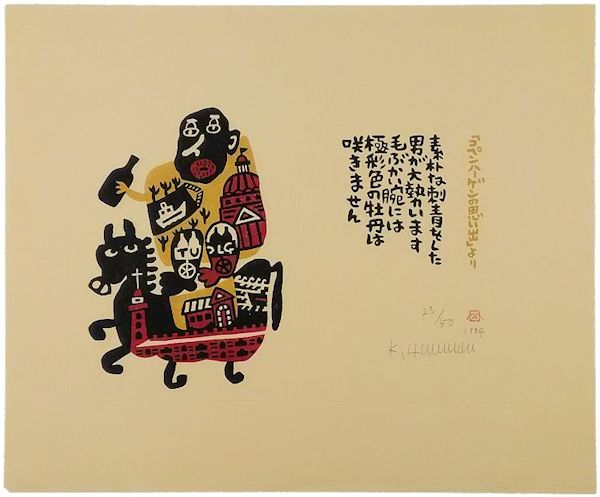 「コペンハーゲンの思い出」より
素朴な刺青をした
男が大勢います
毛ぶかい腕には
極彩色の牡丹は
咲きません
TU
OLG
23/50
1984